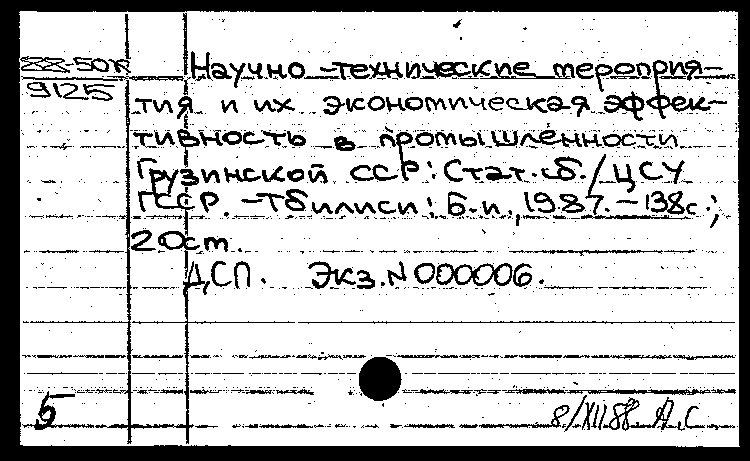 88-50к
9125
Научно-технические мероприя-
тия и их экономическая эффек-
тивность в промышленности
Грузинской ССР: Стат.сб./ЦСУ
ГССР. -Тбилиси: Б.и., 1987. - 138с.;
20ст.
ДСП. Экз.N000006.
5
8/XII 88. А.С